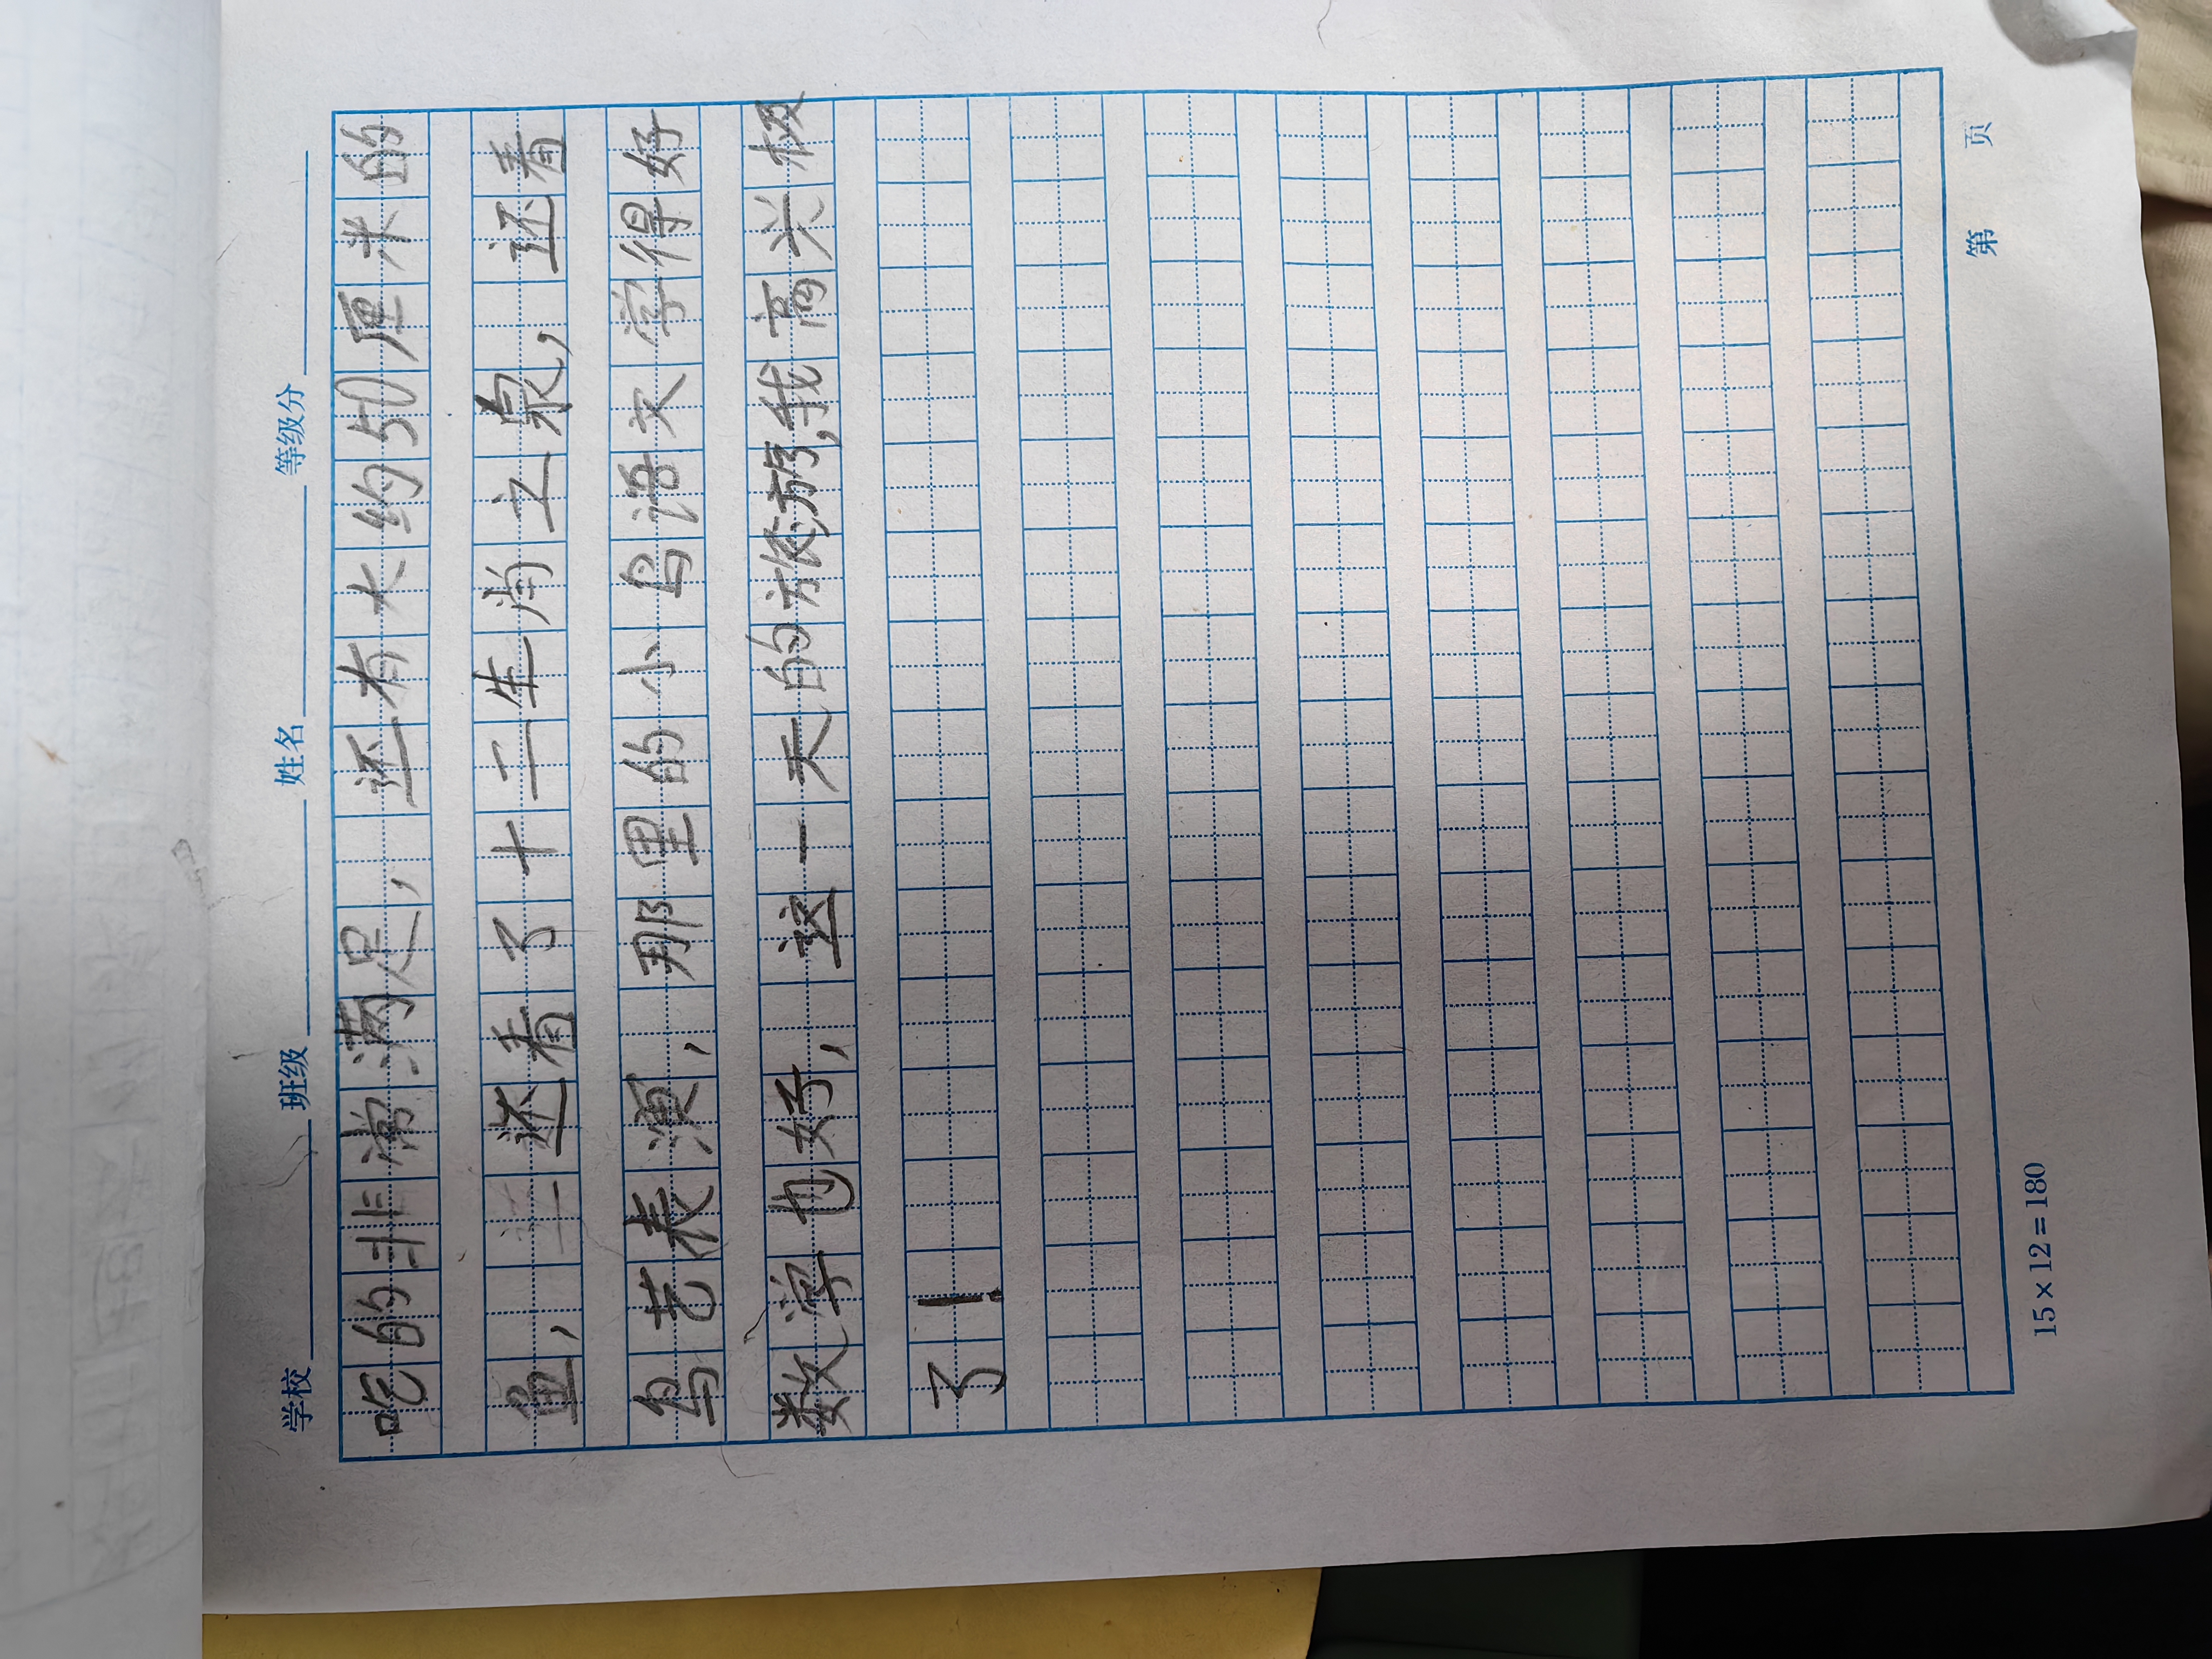 学校 班级 姓名 等级分
吃的非常满足,还有大约50厘米的
鱼,还看了十二生肖立泉,还看
鸟艺表演,那里的小鸟语文学得好
数学也好,这一天的旅游,我高兴极
了!
15×12=180 第 页